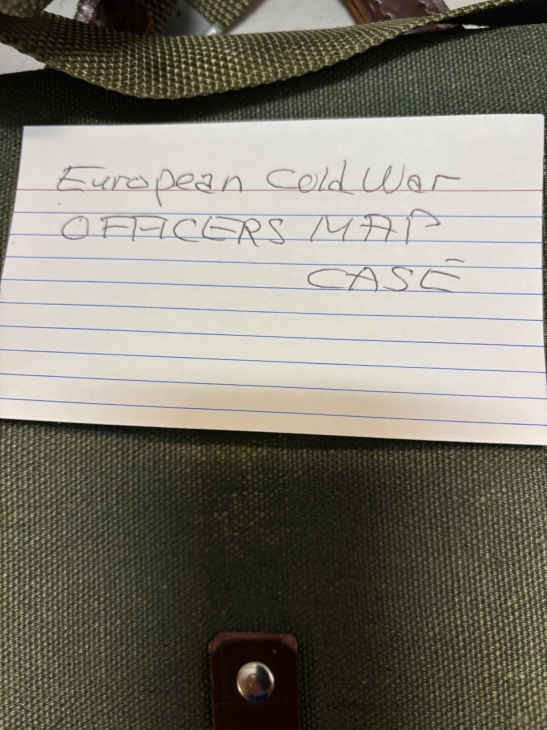 European Cold War
OFFICERS MAP
CASE